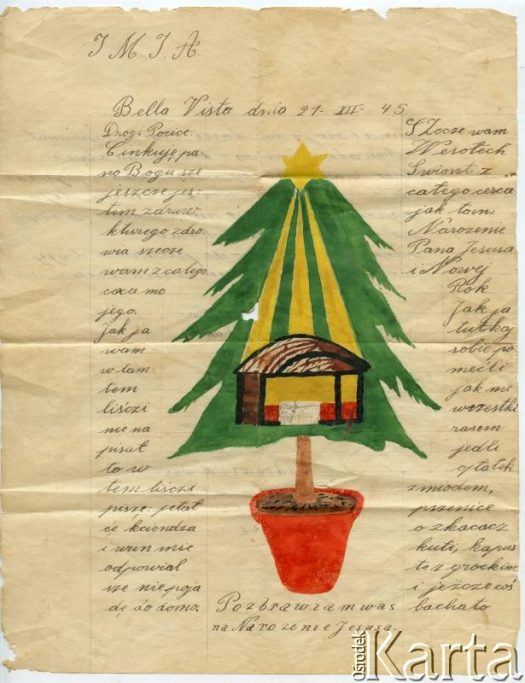 J M J A.
Bella Vista dnia 21 - XII - 45
Drogi
Cinkuję pa
no Bogu sze
jeszcze jes-
tem zdruw
kturego zdro
wia szecze
wam z całego
mo
jego.
Jak ja
wam
w tam
tem
liśczi
nie na
pisał
to w
tem liśczi
piszę, pitał
ćę kciendza
i wun mie
odpowiał
sze nie poja
dę do domo.
SZocze wam
Wesołech
Swiont z
całego cerca
jak tam
Narozenie
Pana Jesusa
i Nowej
Rok
Jak ja
tutkaj
sobie po
meśli
jak me
wszestki
rasem
jedli
opłatek
z miodem,
pszenice
o
kuti, kapus
te z grochim
i jeżcze coś
bachato
Pozdrawiam was
na Narozenie Jesusa.
Ośrodek
Karta